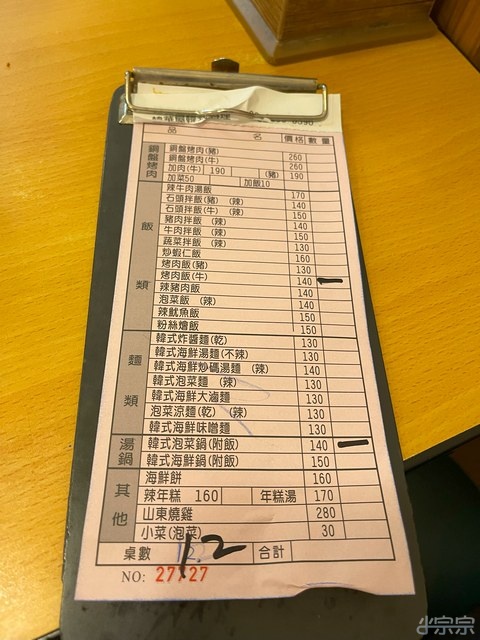 品 名 價格 數量
銅盤烤肉
銅盤烤肉(豬) 260
銅盤烤肉(牛) 260
加肉(牛) 190 (豬) 190
加菜50 加飯10
飯類
辣牛肉湯飯 170
石頭拌飯(豬) (辣) 140
石頭拌飯(牛) (辣) 150
豬肉拌飯 (辣) 140
牛肉拌飯 (辣) 150
蔬菜拌飯 (辣) 130
炒蝦仁飯 160
烤肉飯(豬) 130
烤肉飯(牛) 140
辣豬肉飯 140
泡菜飯 (辣) 140
辣魷魚飯 150
粉絲燴飯 150
麵類
韓式炸醬麵(乾) 130
韓式海鮮湯麵(不辣) 130
韓式海鮮炒碼湯麵 (辣) 140
韓式泡菜麵 (辣) 130
韓式海鮮大滷麵 130
泡菜涼麵(乾) (辣) 130
韓式海鮮味噌麵 130
湯鍋
韓式泡菜鍋(附飯) 140
韓式海鮮鍋(附飯) 150
其他
海鮮餅 160
辣年糕 160 年糕湯 170
山東燒雞 280
小菜(泡菜) 30
桌數 12 合計
NO: 27727
小宗宗